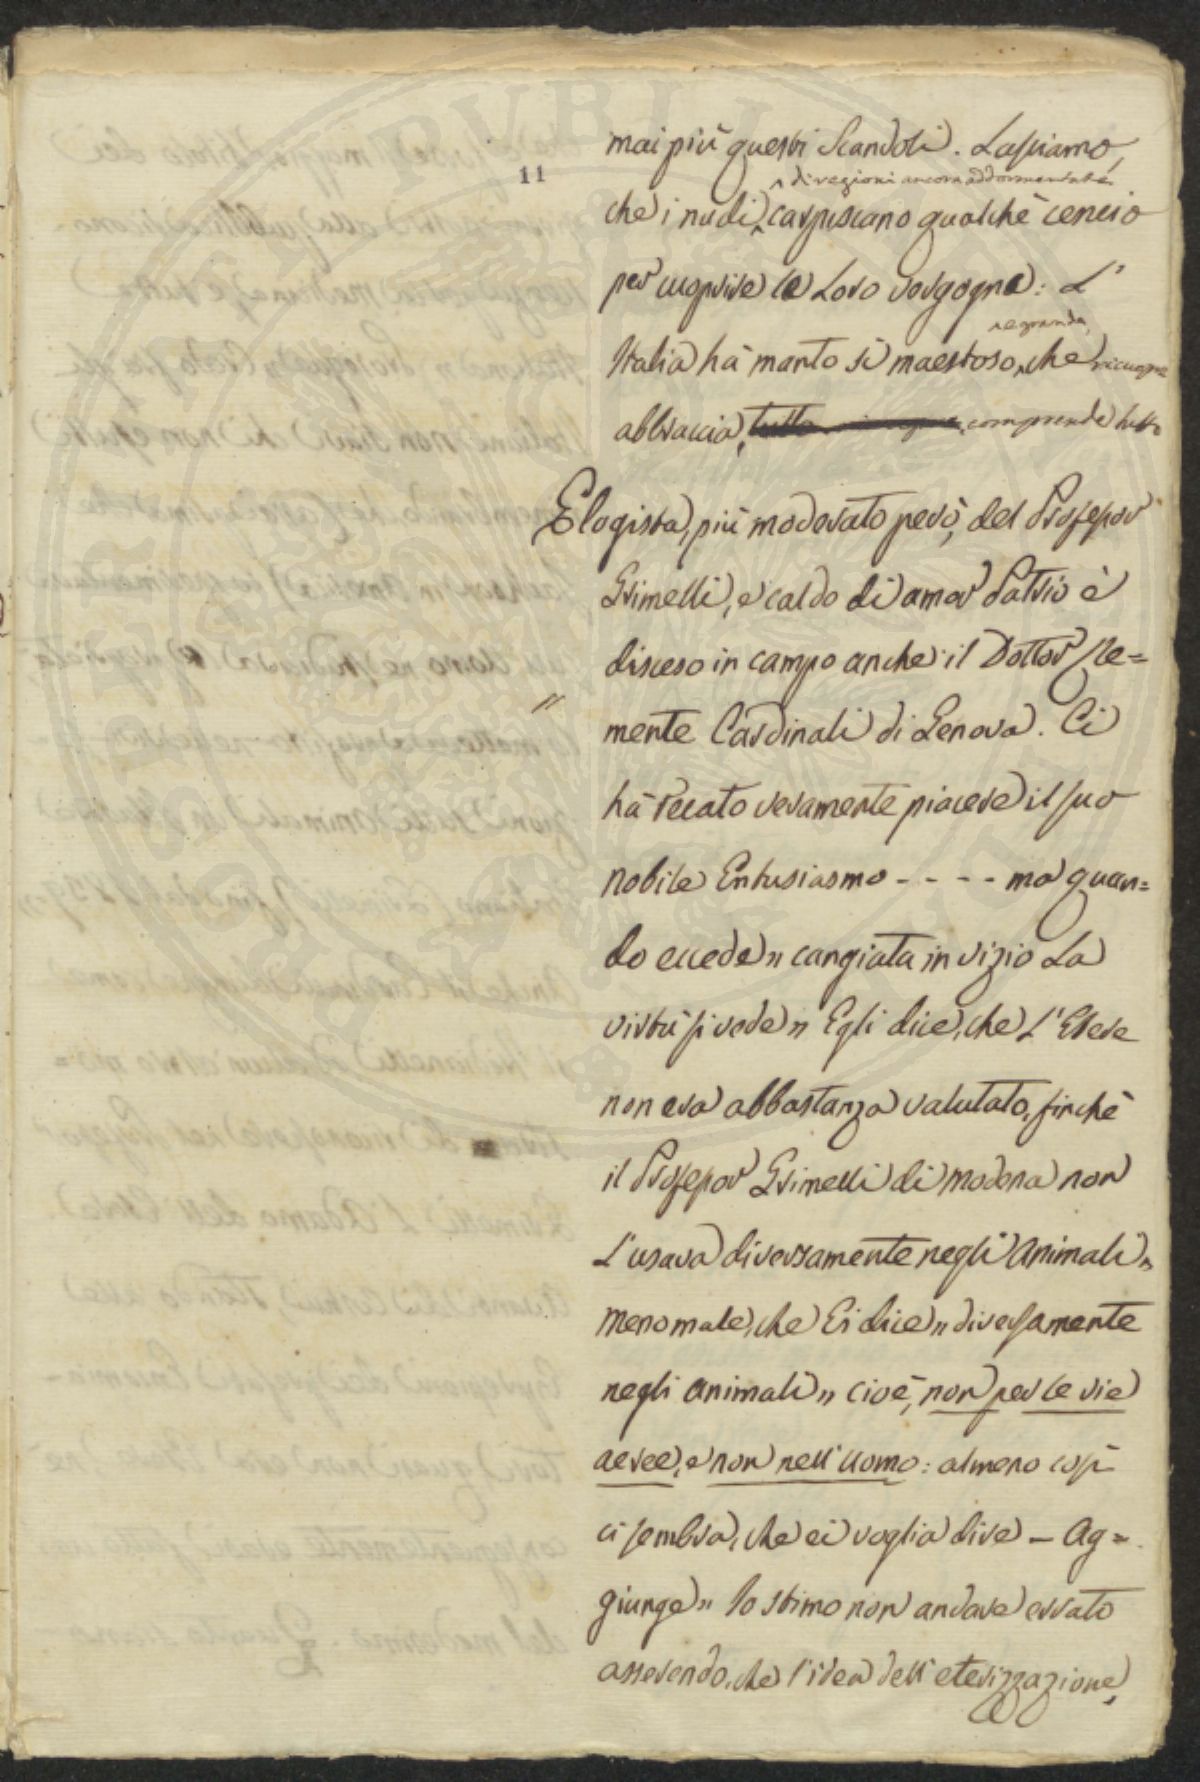 11
mai più questi Scandoli. Lasciamo,
di regioni ancora addormentate
che i nudi, carpiscano qualche cencio
per coprire le Loro vergogne: L'
Italia hà manto sì maestoso, che
e grande,
ricuopre
abbraccia, tutto comprende tutto
Elogista, più moderato però, del Professor
Grimelli, e caldo di amor Patrio è
disceso in campo anche il Dottor Cle=
mente Cardinali di Genova. Ci
"
hà recato veramente piacere il suo
nobile Entusiasmo - - - - ma quan=
do eccede " cangiata in vizio La
virtù si vede " Egli dice, che L'Etere
non era abbastanza valutato, finchè
il Professor Grimelli di Modena non
L'usava diversamente negli Animali "
Meno male, che Ei dice " diversamente
negli animali " cioè, non per le vie
aeree, e non nell'uomo: almeno così
ci sembra, che ei voglia dire - Ag=
giunge " Io stimo non andare errato
asserendo, che l'idea dell'eterizzazione,